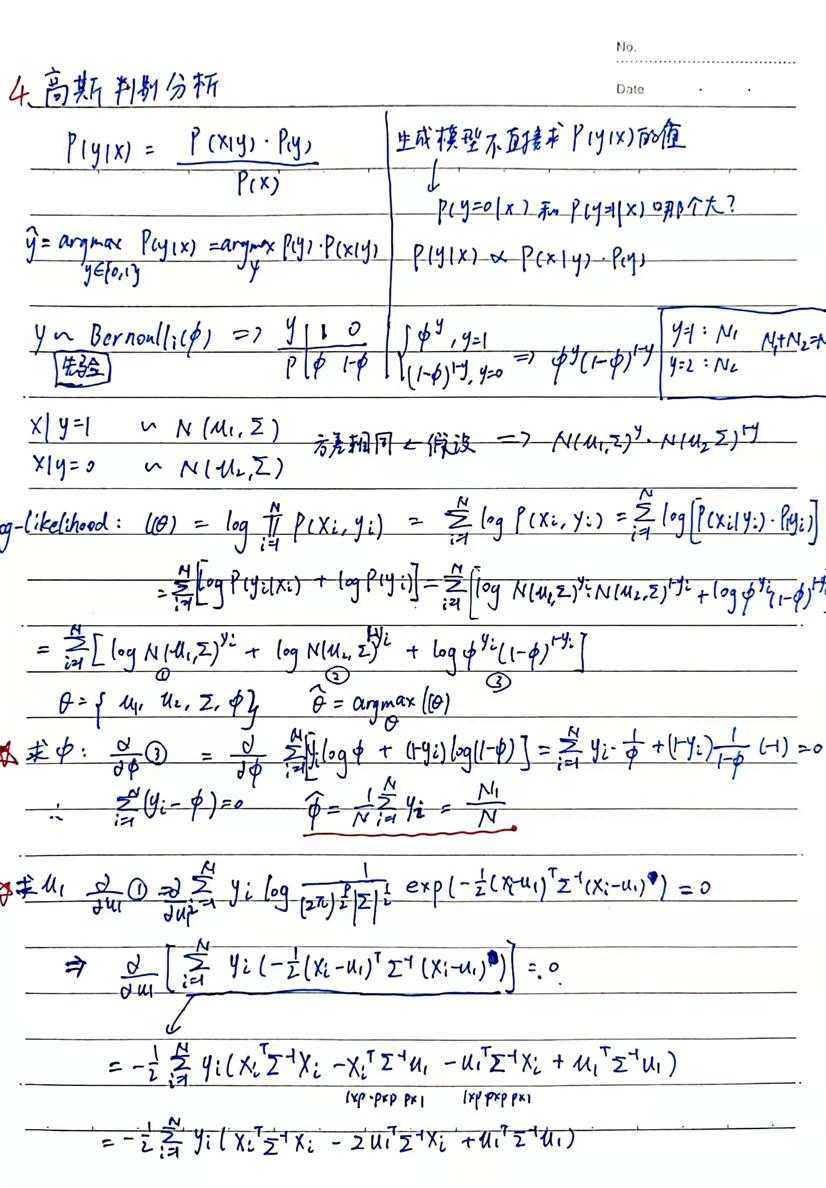 No.
Date
4. 高斯判别分析
P(y|x) = P(x|y)·P(y) / P(x)
生成模型不直接求 P(y|x) 的值
↓
P(y=0|x) 和 P(y=1|x) 哪个大?
ŷ = argmax_{y∈{0,1}} P(y|x) = argmax_y P(y)·P(x|y)
P(y|x) ∝ P(x|y)·P(y)
y ~ Bernoulli(φ) => y | 1 0
P | φ 1-φ
先验
{ φ^y, y=1
(1-φ)^{1-y}, y=0 => φ^y(1-φ)^{1-y}
y=1: N₁
y=2: N₂
N₁+N₂=N
x|y=1 ~ N(u₁,Σ)
x|y=0 ~ N(u₂,Σ)
方差相同 ← 假设 => N(u₁,Σ)^y · N(u₂Σ)^{1-y}
og-likelihood: l(θ) = log ∏_{i=1}^N P(xi,yi) = Σ_{i=1}^N log P(xi,yi) = Σ_{i=1}^N log[P(xi|yi)·P(yi)]
= Σ_{i=1}^N [log P(yi|xi) + log P(yi)] = Σ_{i=1}^N [log N(u₁,Σ)^{yi}·N(u₂,Σ)^{1-yi} + log φ^{yi}(1-φ)^{1-yi}
= Σ_{i=1}^N [log N(u₁,Σ)^{yi} + log N(u₂,Σ)^{1-yi} + log φ^{yi}(1-φ)^{1-yi}]
① ② ③
θ = {u₁, u₂, Σ, φ} θ̂ = argmax_θ l(θ)
☆ 求φ: ∂/∂φ ③ = ∂/∂φ Σ_{i=1}^N [yi log φ + (1-yi) log(1-φ)] = Σ_{i=1}^N yi·1/φ + (1-yi) 1/(1-φ) (-1) = 0
∴ Σ_{i=1}^N (yi-φ)=0 φ̂ = 1/N Σ_{i=1}^N yi = N₁/N
☆ 求u₁ ∂/∂u₁ ① = ∂/∂u₁ Σ_{i=1}^N yi log 1/((2π)^{p/2}|Σ|^{1/2}) exp(-1/2(xi-u₁)^T Σ^{-1}(xi-u₁)) = 0
⇒ ∂/∂u₁ [Σ_{i=1}^N yi(-1/2(xi-u₁)^T Σ^{-1}(xi-u₁))] = 0
= -1/2 Σ_{i=1}^N yi(xi^TΣ^{-1}xi - xi^TΣ^{-1}u₁ - u₁^TΣ^{-1}xi + u₁^TΣ^{-1}u₁)
1xp·pxp px1 1xp pxp px1
= -1/2 Σ_{i=1}^N yi(xi^TΣ^{-1}xi - 2u₁^TΣ^{-1}xi + u₁^TΣ^{-1}u₁)